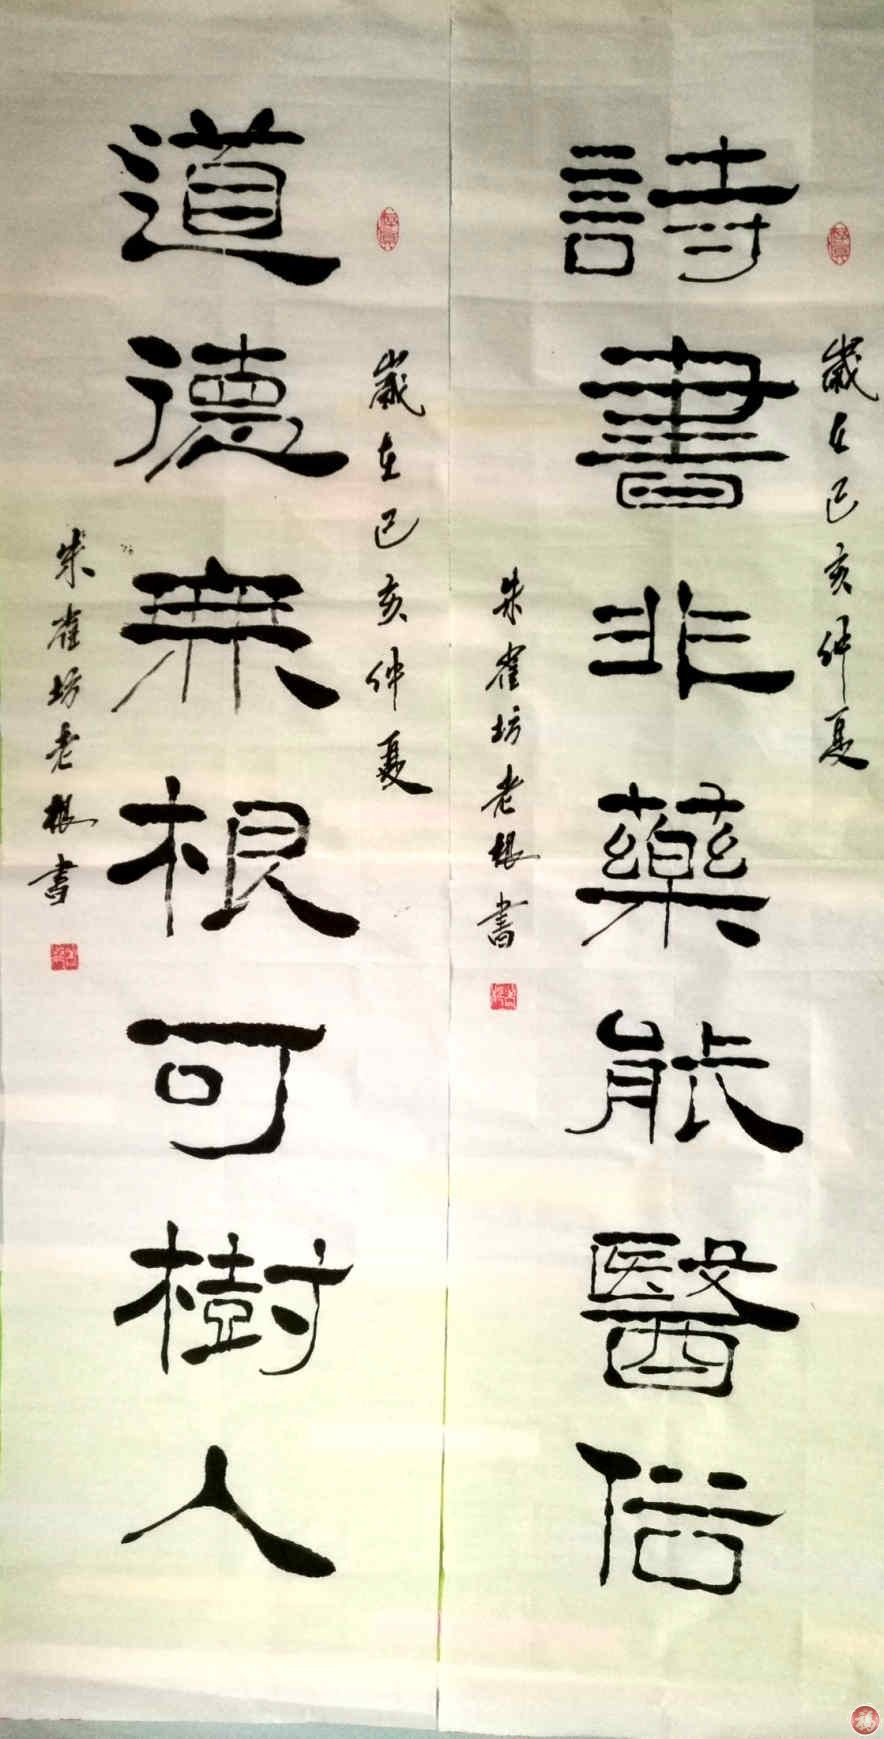 詩書非藥能醫俗
歲在己亥仲夏
朱雀坊老根書
道德無根可樹人
歲在己亥仲夏
朱雀坊老根書
福